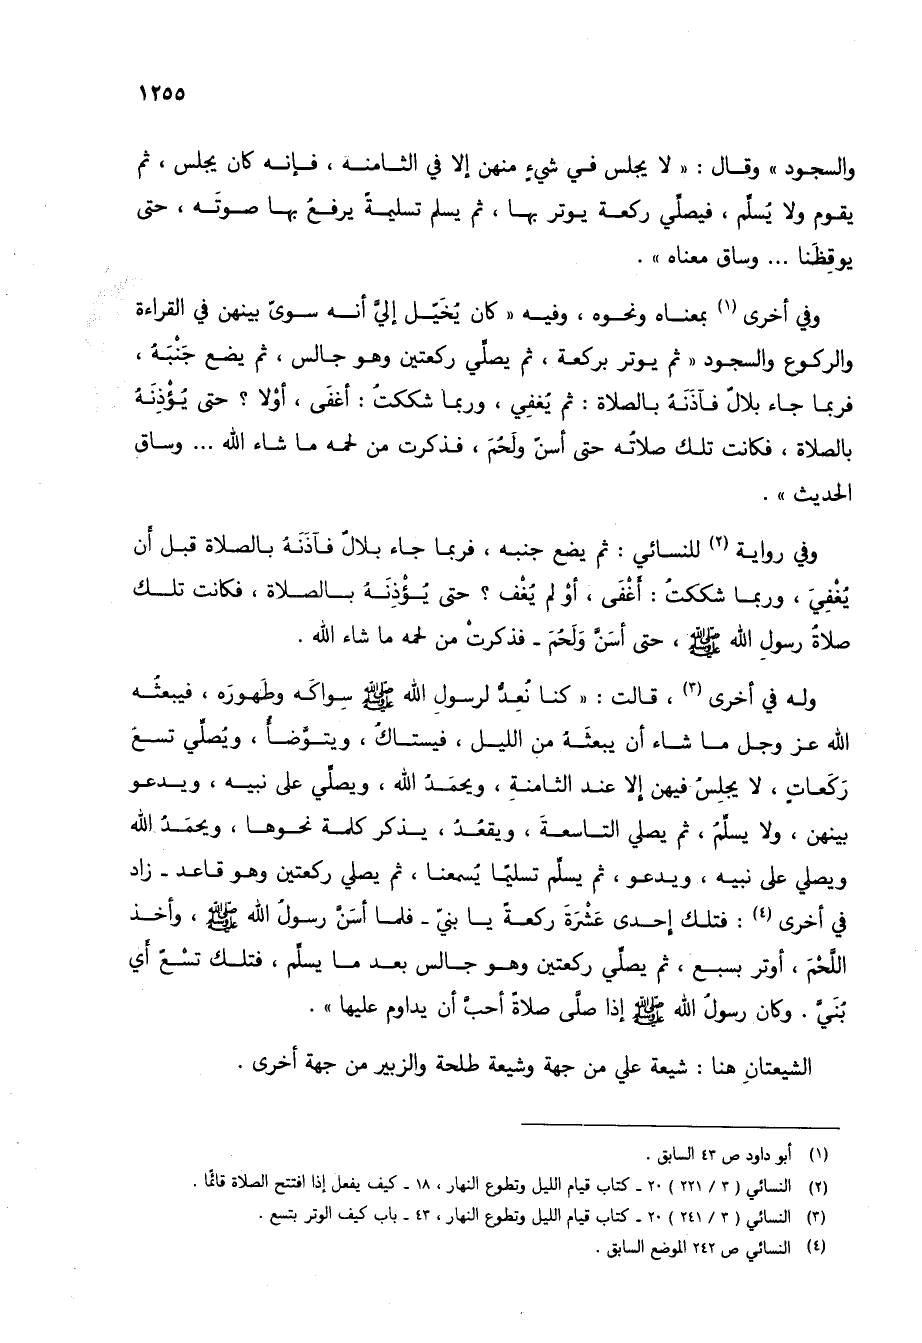 ١٢٥٥
والسجود » وقال : « لا يجلس في شيءٍ منهن إلا في الثامنة ، فإنه كان يجلس ، ثم
يقوم ولا يُسلِّم ، فيصلِّي ركعة يوتر بها ، ثم يسلم تسليمةً يرفعُ بها صوتَه ، حتى
يوقِظَنا ... وساق معناه » .
وفي أخرى (١) بمعناه ونحوه ، وفيه « كان يُخَيَّل إليَّ أنه سوىّ بينهن في القراءة
والركوع والسجود « ثم يوتر بركعة ، ثم يصلِّي ركعتين وهو جالس ، ثم يضع جَنْبَهُ ،
فربما جاء بلالٌ فآذَنَهُ بالصلاة : ثم يُغفي ، وربما شككتُ : أغفَى ، أوْلا ؟ حتى يُؤْذِنَهُ
بالصلاة ، فكانت تلك صلاتُه حتى أسنّ ولَحُمَ ، فذكرت من لحمه ما شاء الله ... وساق
الحديث » .
وفي رواية (٢) للنسائي : ثم يضع جنبه ، فربما جاء بلالٌ فآذَنَهُ بالصلاة قبل أن
يُغْفِيَ ، وربما شككتُ : أَغْفَى ، أوْ لم يُغْف ؟ حتى يُؤْذِنَهُ بالصلاة ، فكانت تلك
صلاةُ رسولِ الله ﷺ ، حتى أسَنَّ وَلَحُمَ ـ فذكرتْ من لحمه ما شاء الله .
وله في أخرى (٣) ، قالت : « كنا نُعِدُّ لرسولِ الله ﷺ سواكَه وطَهورَه ، فيبعثُه
الله عز وجل ما شاء أن يبعثَهُ من الليل ، فيستاكُ ، ويتوَّضأُ ، ويُصلِّي تسعَ
رَكَعاتٍ ، لا يجلِسُ فيهن إلا عند الثامنةِ ، ويحمَدُ الله ، ويصلِّي على نبيه ، ويدعو
بينهن ، ولا يسلِّمُ ، ثم يصلي التاسعةَ ، ويقعُدُ ، يذكر كلمة نحوها ، ويحمَدُ الله
ويصلي على نبيه ، ويدعو ، ثم يسلِّم تسليمًا يُسمعنا ، ثم يصلي ركعتين وهو قاعد ـ زاد
في أخرى (٤) : فتلك إحدى عَشْرَةَ ركعةً يا بنيّ ـ فلما أسَنَّ رسولُ الله ﷺ ، وأخذ
اللَّحْمَ ، أوتر بسبع ، ثم يصلِّي ركعتين وهو جالس بعد ما يسلِّم ، فتلك تسْعٌ أي
بُنَيَّ . وكان رسولُ الله ﷺ إذا صلَّى صلاةً أحبَّ أن يداوم عليها » .
الشيعتانِ هنا : شيعة علي من جهة وشيعة طلحة والزبير من جهة أخرى .
(١) أبو داود ص ٤٣ السابق .
(٢) النسائي ( ٣ / ٢٢١ ) ٢٠ ـ كتاب قيام الليل وتطوع النهار ، ١٨ ـ كيف يفعل إذا افتتح الصلاة قائمًا .
(٣) النسائي ( ٣ / ٢٤١ ) ٢٠ ـ كتاب قيام الليل وتطوع النهار ، ٤٣ ـ باب كيف الوتر بتسع .
(٤) النسائي ص ٢٤٢ الموضع السابق .